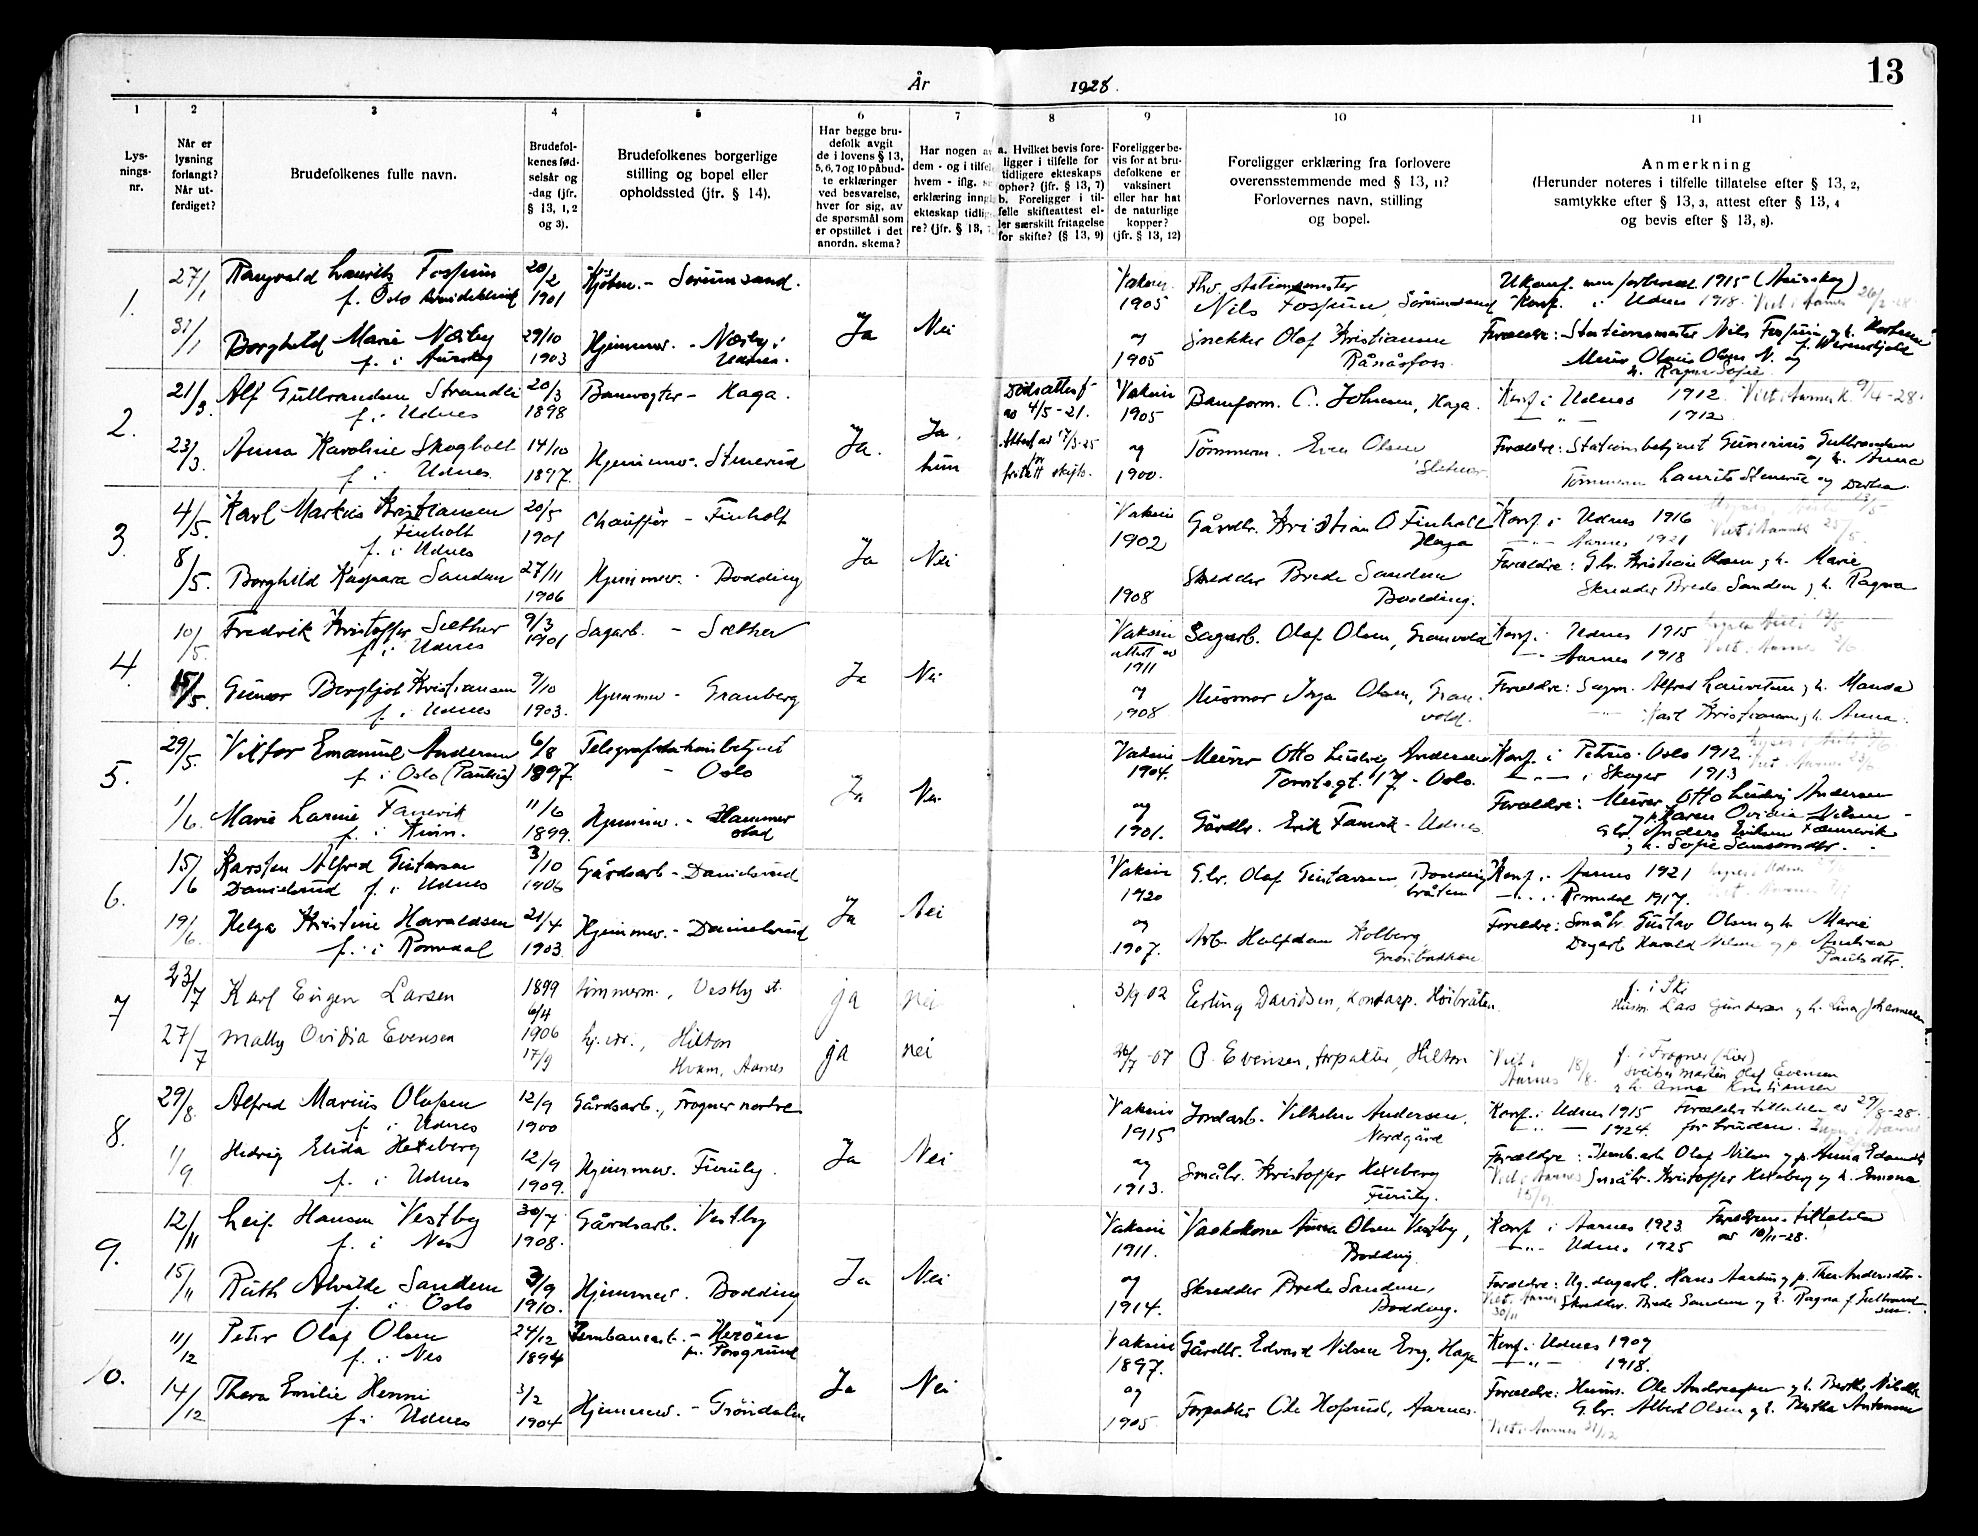 13
År 1928.
1 2 3 4 5 6 7 8 9 10 11
Lys-
nings-
nr.
Når er
lysning
forlangt?
Når ut-
ferdiget?
Brudefolkenes fulle navn.
Brudefol-
kenes fød-
selsår og
-dag (jfr.
§ 13, 1, 2
og 3).
Brudefolkenes borgerlige
stilling og bopel eller
opholdssted (jfr. § 14).
Har begge bru-
defolk avgit
de i lovens § 13,
5, 6, 7 og 10 påbud-
te erklæringer
ved besvarelse,
hver for sig, av
de spørsmål som
er opstillet i det
anordn. skema?
Har nogen av
dem - og i tilfelle
hvem - iflg.
erklæring inng
ekteskap tidlig
re? (jfr. § 13,
a. Hvilket bevis fore-
ligger i tilfelle for
tidligere ekteskaps
ophør? (jfr. § 13, 7)
b. Foreligger i til-
felle skifteattest el-
ler særskilt fritagelse
for skifte? (§ 13, 9)
Foreligger be-
vis for at bru-
defolkene er
vaksinert
eller har hat
de naturlige
kopper?
(jfr. § 13, 12)
Foreligger erklæring fra forlovere
overensstemmende med § 13, 11?
Forlovernes navn, stilling
og bopel.
Anmerkning
(Herunder noteres i tilfelle tillatelse efter § 13, 2,
samtykke efter § 13, 3, attest efter § 13, 4
og bevis efter § 13, 8).
1.
27/1 Rangvald Lauritz Fossum 20/2 - Sørumsand. Vaksin. Fhv. Stationsmester 1915 (Aurskog)
f. Oslo 1901 1905 Nils Fossum, Sørumsand Konf. i Udnes 1918.
31/1 Borghild Marie Næsby 29/10 Hjemmev. - Næsby i Ja Nei og Snekker Olaf Kristiansen Forældre: Stationsmester Nils Fossum og h.
f. i Aurskog 1903 Udnes. 1905 Rånåsfoss. Murer Olaus Olsen N. og
h. Ragna Sofie
2.
21/3. Alf Gulbrandsen Strandli 20/3 Banevogter - Haga. Dødsattest Vaksin Baneform. C. Johnsen, Haga. Konf. i Udnes 1912. Viet i Aarnes k. 9/4-28.
f. i Udnes 1898 4/5-21. 1905 1912
23/3. Anna Karoline Skogholt 14/10 Hjemmev. Stenerud Ja. Ja, Attest av 17/3-25 og Tømmerm. Olsen Forældre: Stationsbetjent Gunerius Gulbrandsen
og h. Anna
f. i Udnes. 1897. hun skifte. 1900. Tømmerm Laurits Stenerud og Dorthea
3.
4/5. Karl Markus Kristiansen 20/5 Chauffør - Finholt Vaksin Gårdbr. Kristian O Finholt Konf. i Udnes 1916
Finholt 1901 1902 Haga Aarnes 1921
f. i Udnes
8/5. Borghild Kaspara Sanden 27/11 Hjemmev. - Bodding Ja Nei Skredder Brede Sanden Forældre: Gbr. Kristian Olsen og h. Marie
1906 1908 Bodding. Skredder Brede Sanden og h. Ragna
4.
10/5. Fredrik Kristoffer Sæther 9/3 Sagarb. - Sæther Vaksin Sagarb. Olaf Olsen, Granvold Konf. i Udnes 1915
f. i Udnes 1901 attest av 1911 Aarnes 1918
15/5. Gunvor Bergljot Kristiansen 9/10 Hjemmev - Granberg Ja Nei og Husmor Inga Olsen, Gran- Forældre: Sagm. Alfred Lauritsen og h. Manda
f. i Udnes 1903. 1908 vold. Karl Kristiansen og h. Anna.
5.
29/5. Viktor Emanuel Andersen 6/8 Telegrafstationsbetjent Vaksin Murer Otto Ludvig Andersen Konf. i Petrus. Oslo 1912.
f. i Oslo (Paulus) 1897. - Oslo 1904. 17 - Oslo. i Skoger 1913
1/6. Marie Laurie Fannevik 11/6 Hjemmev. - Hammer Ja Nei og Forældre: Murer Otto Ludvig Andersen
og Karen Ovidia Nilsen
f. i 1899. stad 1901. Gårdbr. Erik Fannevik - Udnes Gbr. Anders Eriksen Fannevik
og h. Sofie
6.
15/6 Karsten Alfred Gustavsen 3/10 Gårdsarb - Danielsrud Vaksin Gbr. Olaf Gustavsen, Bodding- Konf. i Aarnes 1921
Danielsrud f. i Udnes 1906 1920 bråten Romedal 1917.
19/6. Helga Kristine Haraldsen 21/4 Hjemmev. - Danielsrud Ja Nei og Arb. Halfdan Kolberg Forældre: Småbr. Gustav Olsen og h. Marie
f. i Romedal 1903. 1907. Dagarb Harald Nilsen og p. Andrea
Paulsdtr.
7
23/7 Karl Eugen Larsen 1899 tømmerm., Vestby st. ja nei 3/9 02 Erling Davidsen, Høibråten. f. i Ski
6/4 Husm. Lars Gundersen og h. Lina Johannesen
27/7 Mally Ovidia Evensen 1906 hj.v., Hilton ja nei 26/7-07 O. Evensen, forpakter, Hilton Viet i f. i Frogner (Lier)
17/9 Hvam, Aarnes Aarnes 18/8. Sveitser Martin Olaf Evensen
og h. Anna Kristiansen
8.
29/8. Alfred Marius Olafsen 12/9 Gårdsarb., Frogner nordre Vaksin Jordarb. Vilhelm Andersen, Konf. i Udnes 1915 Forældretillatelse av 29/8-28.
f. i Udnes 1900 1915 Nordgård 1924. for bruden.
1/9 Hedvig Elida Hexeberg 12/9 Hjemmev. Furuly. Ja Nei og Småbr. Kristoffer Hexeberg Forældre: Olaf Nilsen og p. Anna
f. i Udnes 1909. 1913. Furuly. Viet i Aarnes Småbr. Kristoffer Hexeberg og h. Emma
15/9.
9.
12/11 Leif Hansen Vestby 30/7 Gårdsarb. Vestby Vaksin Vaskekone Anna Olsen Vestby, Konf. i Aarnes 1923 Foreldrenes tillatelse
f. i Nes 1908. 1911. Bodding Udnes 1925 av 10/11-28.
15/11 Ruth Alvilde Sanden 3/9 Hjemmev. Bodding Ja Nei og Skredder Brede Sanden, Forældre: Ug. dagarb. Hans
f. i Oslo 1910. 1914. Bodding. Viet i Aarnes 30/11 Skredder. Brede Sanden og h. Ragna f. Gulbrand-
sen.
10.
11/12 Peter Olaf Olsen 24/12 Jernbanearb. - Herøen Vaksin Gårdbr. Edvard Nilsen Eng, Haga Konf. i Udnes 1909
f. i Nes 1894 pr. Porsgrund 1897. 1918.
14/12 Thora Emilie Henni 3/2 Hjemmev. - Grøndalen Ja Nei og Forpakter Ole Hofsrud, Aarnes. Forældre: Husm. Ole Andreassen og h. Berthe
f. i Udnes 1904 1905 Gbr. Albert Olsen og h. Bertha Antonsen
Viet i Aarnes 31/12